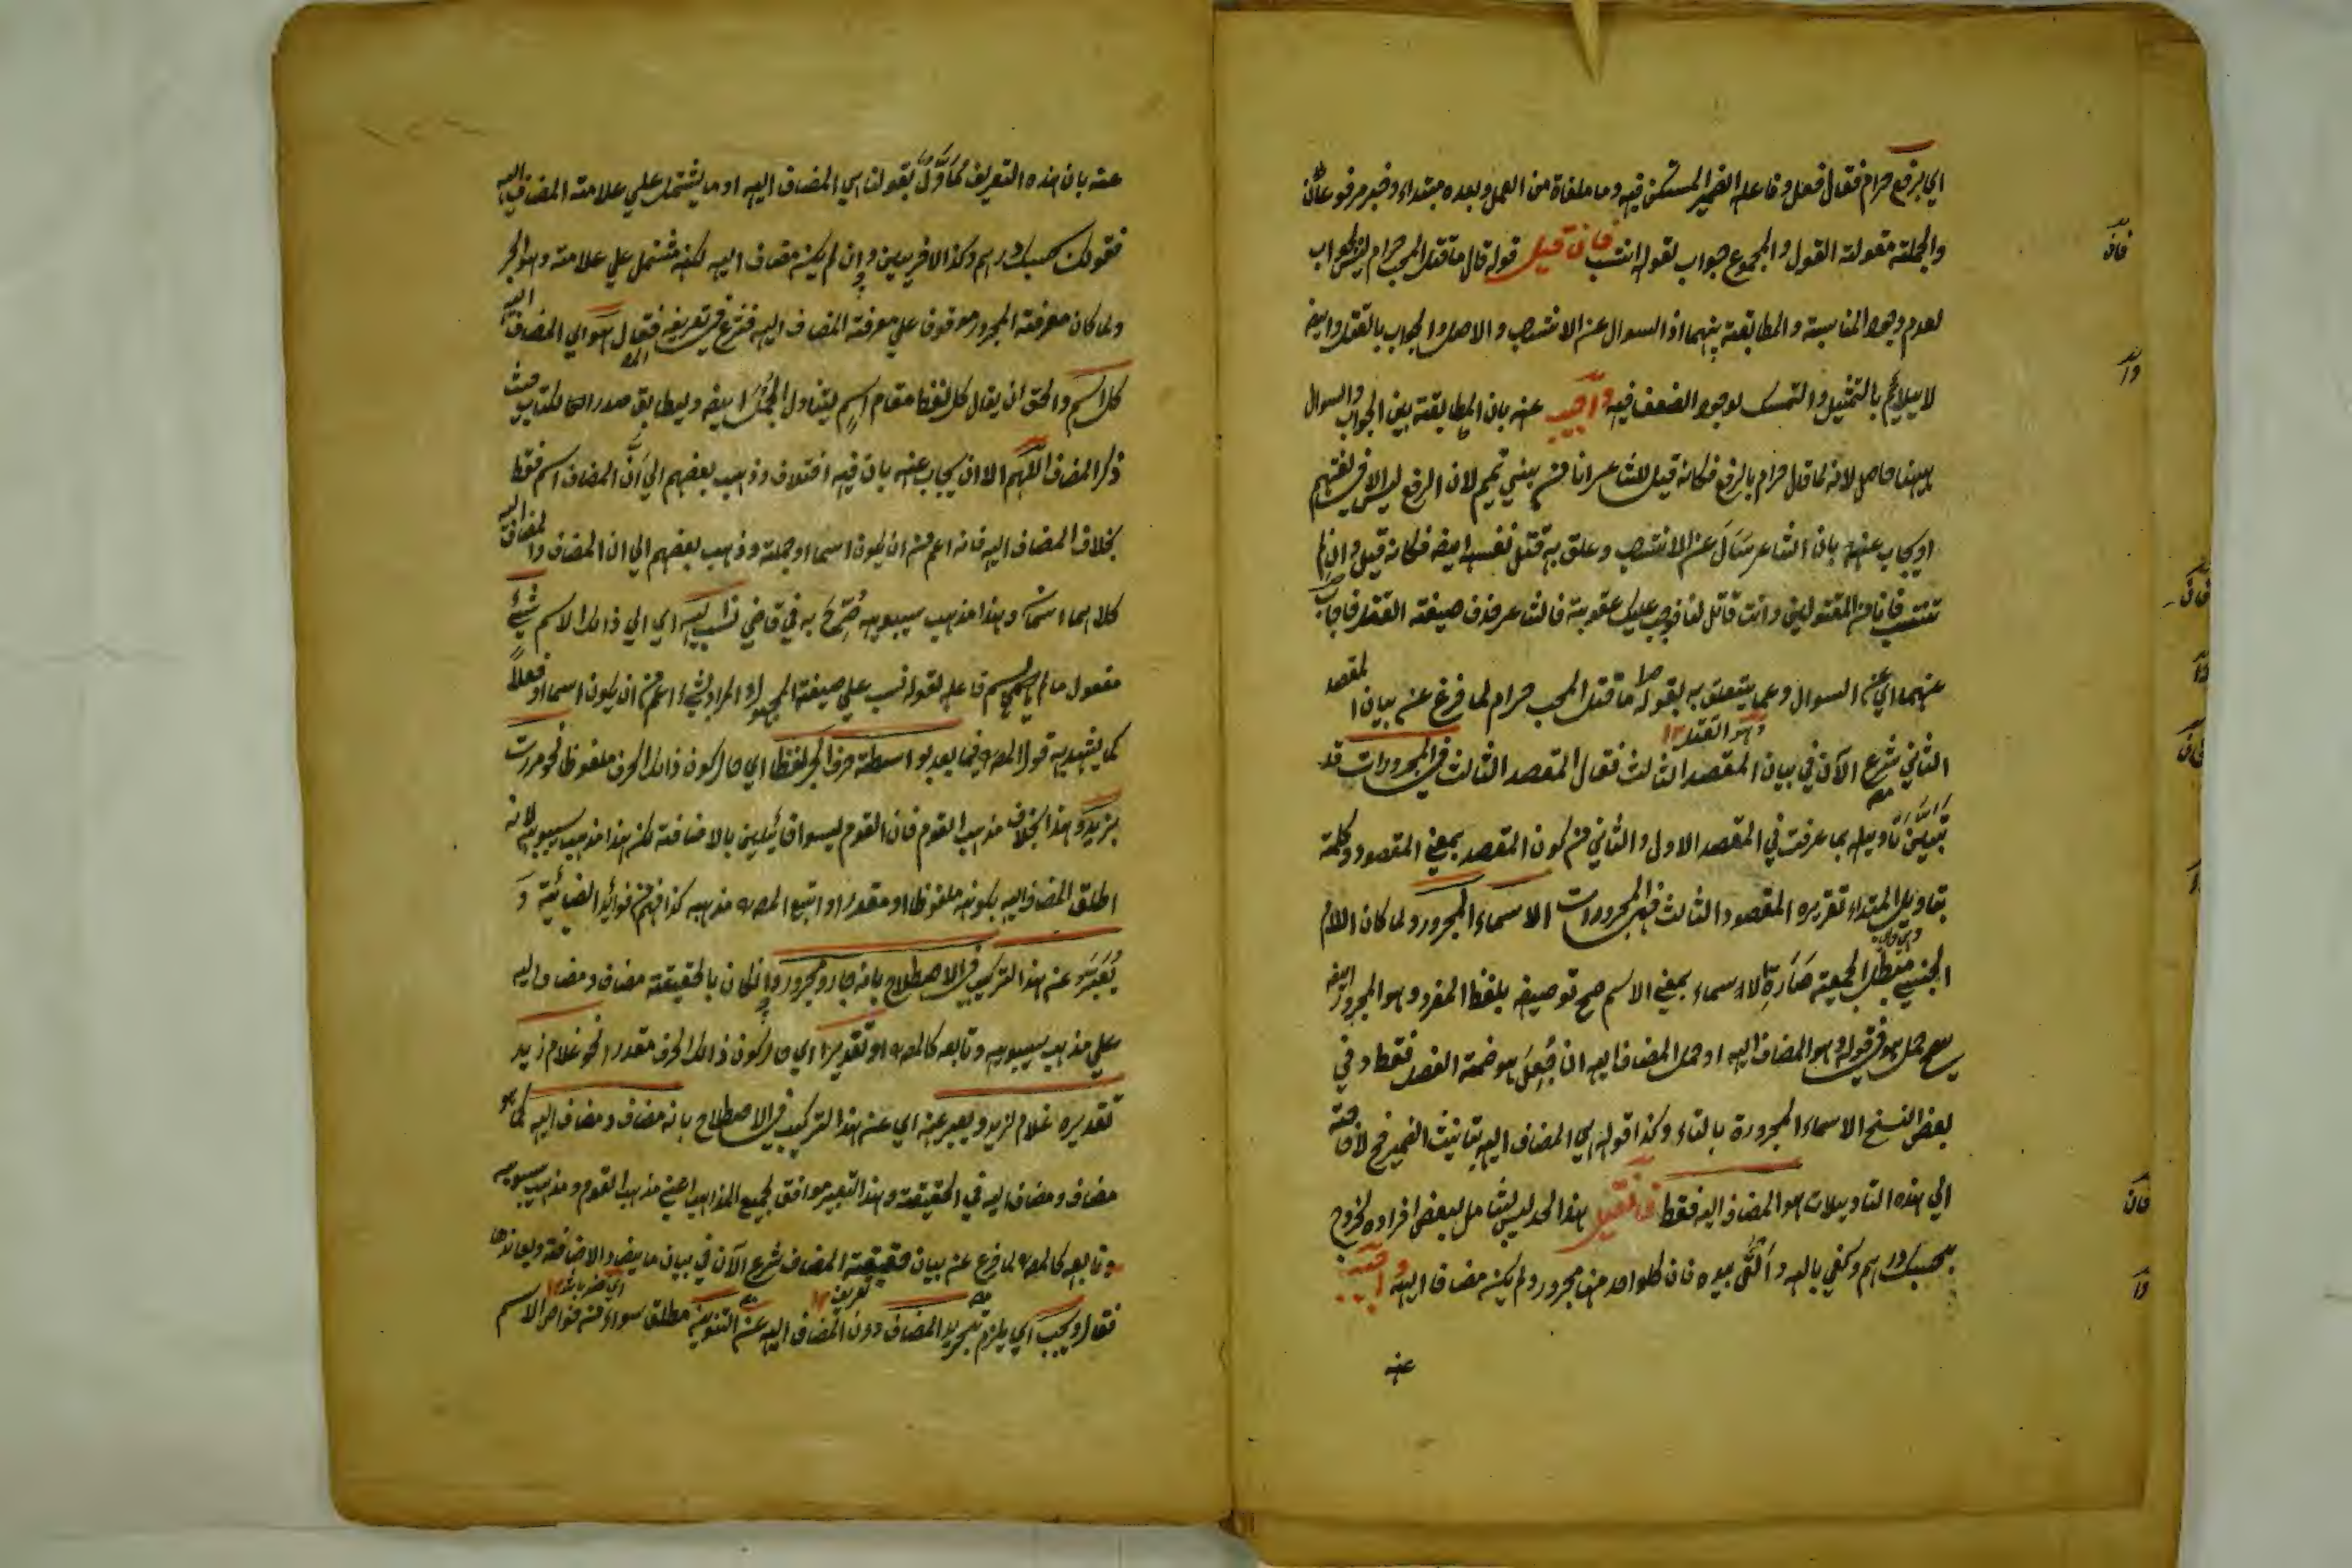 اي برفع حرام فقال فعل وفاعله الضمير المستكن فيه وما ملغاة من العمل وبعده مبتداء وخبر مرفوعان
والجملة مقولة القول والمجموع جواب لقوله انتسب فان قيل قوله قال ما قتل المحب حرام ليس بجواب
لعدم وجود المناسبة والمطابقة بينهما اذ السوال عن الانتساب والاصل والجواب بالقتل وايضا
لا يلايم بالتمثيل والتمسك لوجود الضعف فيه واجيب عنه بان المطابقة بين الجواب والسوال
ههنا حاصل لانه لما قال حرام بالرفع فكانه قيل للشاعر انا من بني تميم لان الرفع ليس الا في لغتهم
او يجاب عنه بان الشاعر سَأَلَ عن الانتساب وعلق به قتل نفسه ايضا فكانه قيل وان لم
تنتسب فانا من المقتولين وانت قاتل لنا فوجب عليك عقوبة فالشاعر حذف صيغة القتل فاجاب
عنهما اي عن السوال وعما يتعلق به بقوله ما قتل المحب حرام لما فرغ عن بيان المقصد
وهو القتل ١٢
الثاني شرع الآن في بيان المقصد الثالث فقال المقصد الثالث في المجرورات قد
تبين تاويله بما عرفت في المقصد الاول والثاني من كون المقصد بمعنى المقصود وكلمة
بتاويل المبتداء تقريره المقصود الثالث في المجرورات الاسماء المجرور ولما كان اللام
الجنسي مبطل الجمعية صارة الاسماء بمعنى الاسم صح توصيفه بلفظ المفرد وهو المجرور ايضا
يصح حمل هو في قوله وهو المضاف اليه او حمل المضاف اليه ان جُعِلَ هو ضمة الفصل فقط وفي
بعض النسخ الاسماء المجرورة بالتاء وكذا قوله هي المضاف اليه بتانيث الضمير فح لا حاجة
الي هذه التاويلات هو المضاف اليه فقط فان قيل هذا الحد ليس بشامل لبعض افراده لخروج
بحسبك درهم وكفي بالله وألقى بيده فان كلواحد منها مجرور ولم يكن مضافا اليه واجيب
عنه
عنه بان هذه التعريف مُأَوَّلٌ بقولنا اي المضاف اليه او ما يشتمل علي علامة المضاف اليه
فقولك بحسبك درهم وكذا الاخريين وان لم يكن مضاف اليه لكنه مشتمل علي علامته وهو الجر
ولما كان معرفة المجرور موقوفا علي معرفة المضاف اليه فشرع في تعريفه فقال هو اي المضاف اليه
كل اسم والحق ان يقال كل لفظ مقام اسم ليتناول الجُمَلَ ايضا وليطابق صدر الكتاب حيث
ذكر المضاف اللهم الا ان يجاب عنه بان فيه اختلاف وذهب بعضهم الي أنَّ المضاف اسم فقط
بخلاف المضاف اليه فانه اعم من ان يكون اسما او جملة وذهب بعضهم الي ان المضاف والمضاف اليه
كلاهما اسمان وهذا مذهب سيبويه صُرِّحَ به في قاضي نسب اليه اي الي ذالك الاسم شيءٌ
مفعول ما لم يسم فاعله لقوله نسب علي صيغة المجهول والمراد بشيء اعم من ان يكون اسما او فعلاً
كما يشهد به قول المصـ فيما بعد بواسطة حرف الجر لفظا اي حال كون ذالك الحرف ملفوظا نحو مررت
بزيد وهذا بخلاف مذهب القوم فان القوم ليسوا قائلين بالاضافة لكن هذا مذهب سيبويه لانه
اطلق المضاف اليه بكونه ملفوظا او مقدرا واتبع المصـ مذهبه كذا فهم من فوائد الضيائية و
يُعَبَّرُ عن هذا التركيب في الاصطلاح بانه جار ومجرور وان كان بالحقيقة مضاف ومضاف اليه
علي مذهب سيبويه وتابعه كالمصـ او تقديرا اي حال كون ذالك الحرف مقدرا نحو غلام زيد
تقديره غلام لزيد ويعبر عنه اي عن هذا التركيب في الاصطلاح بانه مضاف ومضاف اليه كما هو
مضاف ومضاف اليه في الحقيقة وهذا التعبير موافق لجميع المذاهب اعني مذهب القوم ومذهب سيبويه
وتابعه كالمصـ لما فرغ عن بيان حقيقة المضاف شرع الآن في بيان ما يضاد الاضافة ويعاندها
فقال ويجب اي يلزم تجريد المضاف دون المضاف اليه عن التنوين مطلق سواء من خواص الاسم